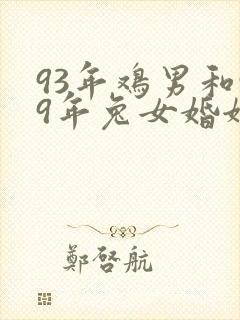 93年鸡男和
9年兔女婚
鄭啓航